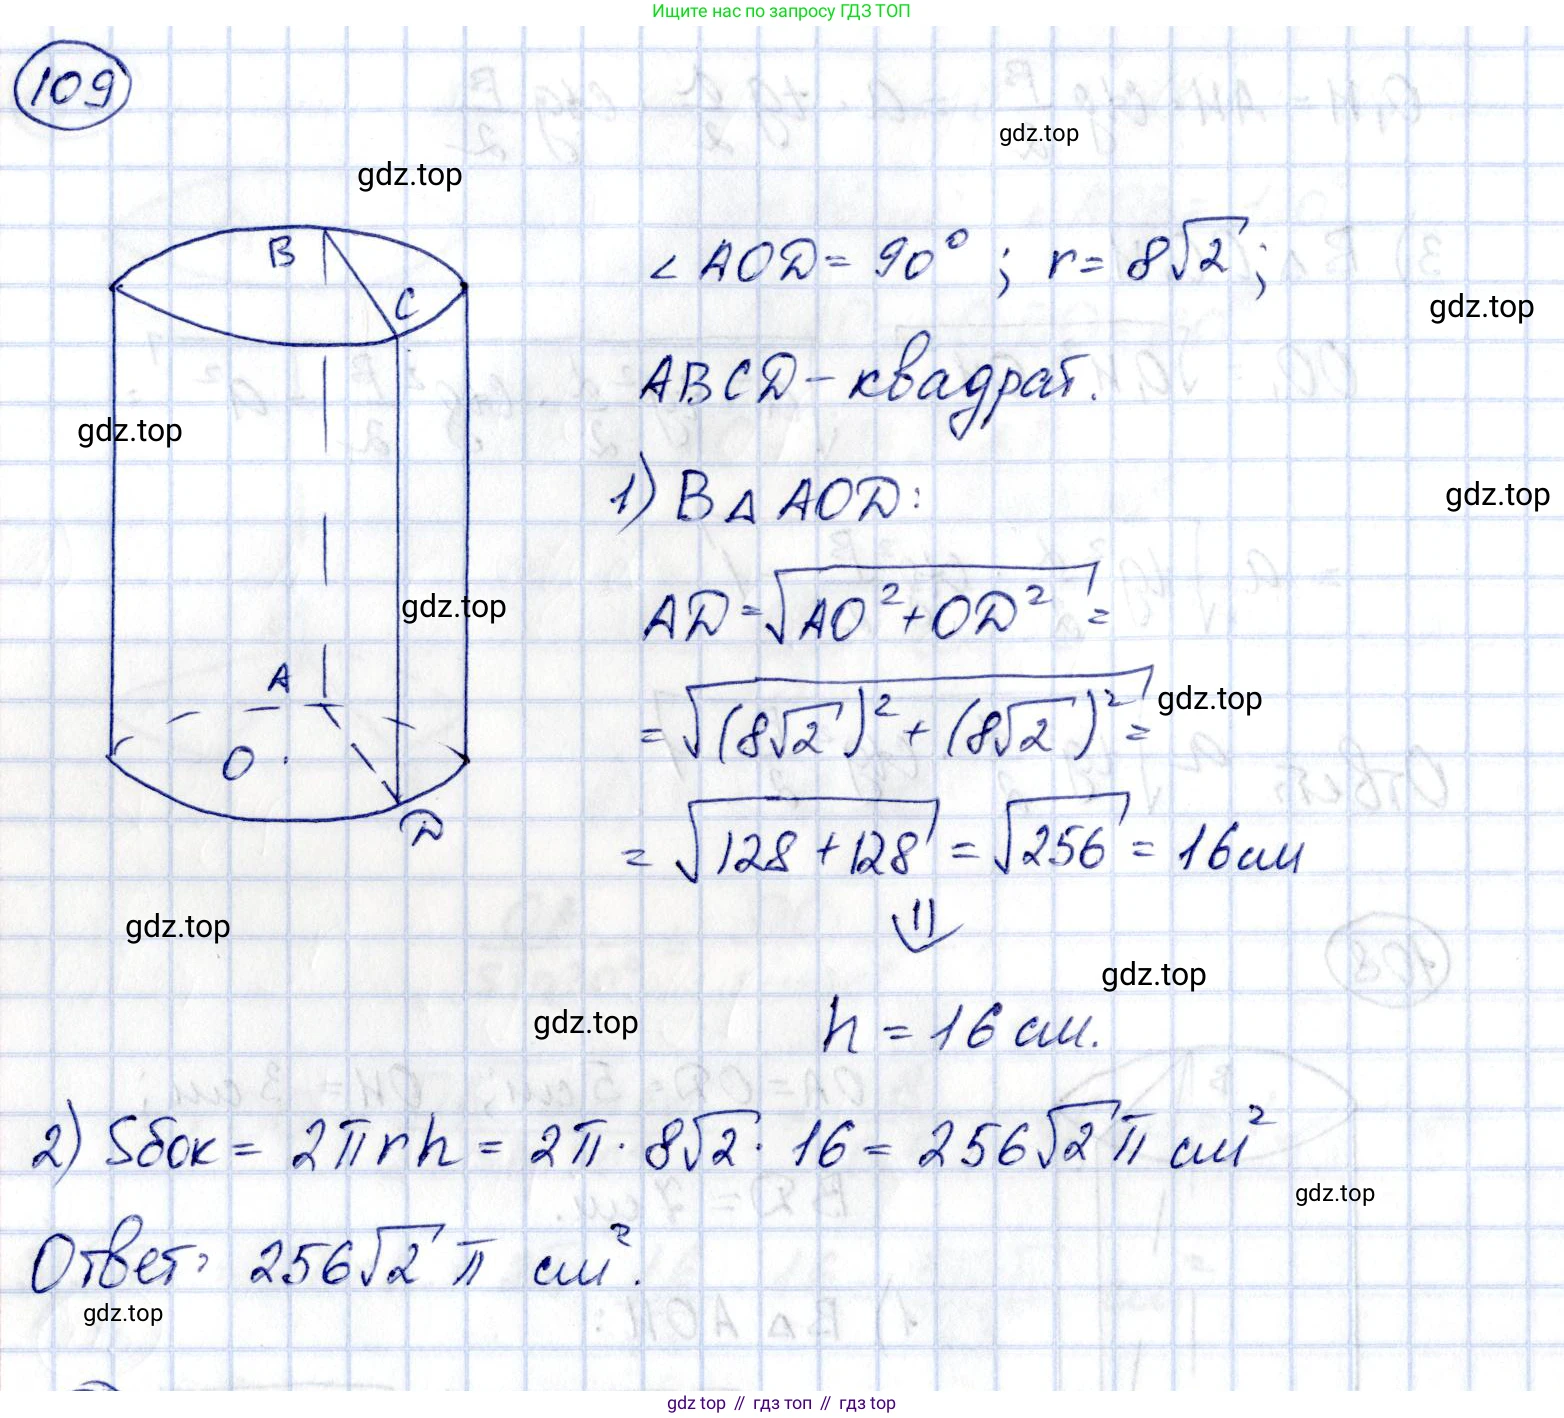 Ищите нас по запросу ГДЗ ТОП
109
gdz.top
gdz.top
B
C
∠ AOD = 90° ; r = 8√2 ;
gdz.top
ABCD – квадрат.
gdz.top
gdz.top
1) В △ AOD:
gdz.top
AD = √(AO² + OD²) =
= √((8√2)² + (8√2)²) =
gdz.top
A
O
D
= √(128 + 128) = √256 = 16 см
gdz.top
⇓
gdz.top
gdz.top
h = 16 см.
2) Sбок = 2πrh = 2π · 8√2 · 16 = 256√2 π см²
gdz.top
Ответ: 256√2 π см².
gdz.top
gdz top // гдз топ // гдз.top